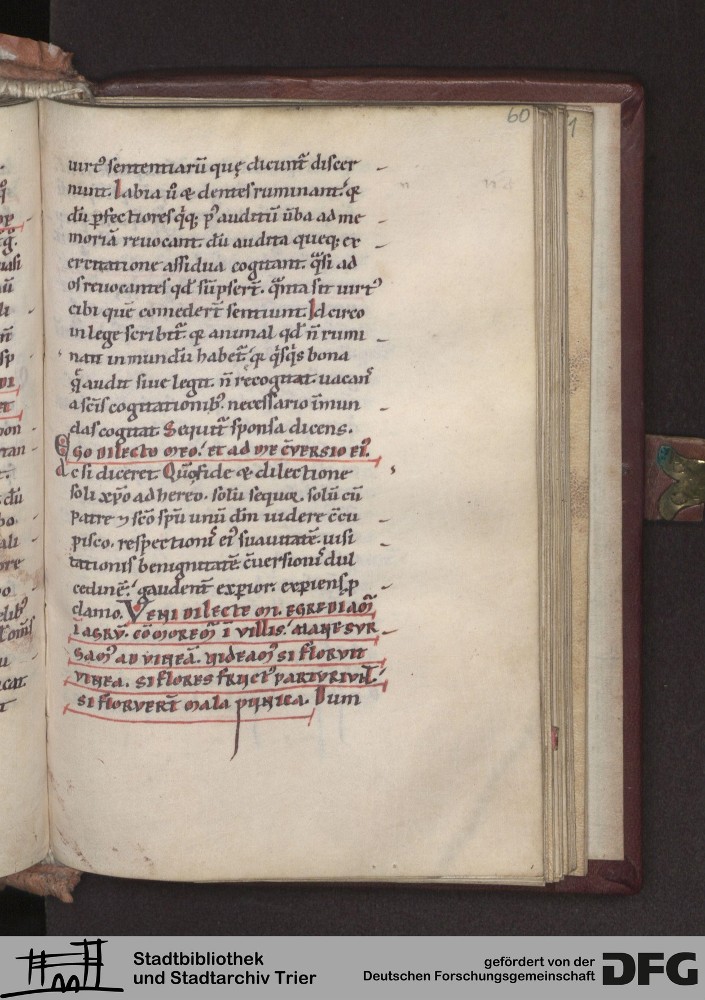 60
1
uirtꝰ sententiarũ quę dicunt᷑ discer
nunt. Labia ũ & dentes ruminant. q̇
dũ ꝑfectiores q̇q; pꝰ auditũ ũba ad me
moriã reuocant. dũ audita queq; ex
ercitatione assidua cogitant. q̃si ad
os reuocantes qd̃ sũpsert̃. q̃nta sit uirtꝰ
cibi quẽ comedert̃ sentiunt. Id circo
in lege scribit᷑. q̇ animal qd̃ ñ rumi
nat inmundũ habet᷑. q̇ q̇sq̇s bona
q̃ audit siue legit. ñ recogitat. uacan
a sc̃is cogitationibꝰ. necessario ĩmun
das cogitat. Sequit᷑ sponsa dicens.
EGO DILECTO MEO. ET AD ME C̃VERSIO EIꝰ.
Ac si diceret. Quõ fide & dilectione
soli xp̃o adhereo. solũ sequor. solũ cũ
patre ⁊ sc̃o sp̃u unũ dm̃ uidere c̃cu
pisco. respectionis eiꝰ suauitatẽ. uisi
tationis benignitatẽ. c̃uersionis dul
cedinẽ. gaudent̃ exꝑior. exꝑiens ꝓ
clamo. VENI DILECTE MI. EGREDIAMꝰ
Ĩ AGRV̄. CÕMOREMꝰ Ĩ VILLIS. MANE SVR
GAMꝰ AD VINEÃ. VIDEAMꝰ SI FLORVIT
VINEA. SI FLORES FRUCTꝰ PARTVRIVNT.
SI FLORVERT̃ MALA PUNICA. Dum
Stadtbibliothek
und Stadtarchiv Trier
gefördert von der
Deutschen Forschungsgemeinschaft
DFG